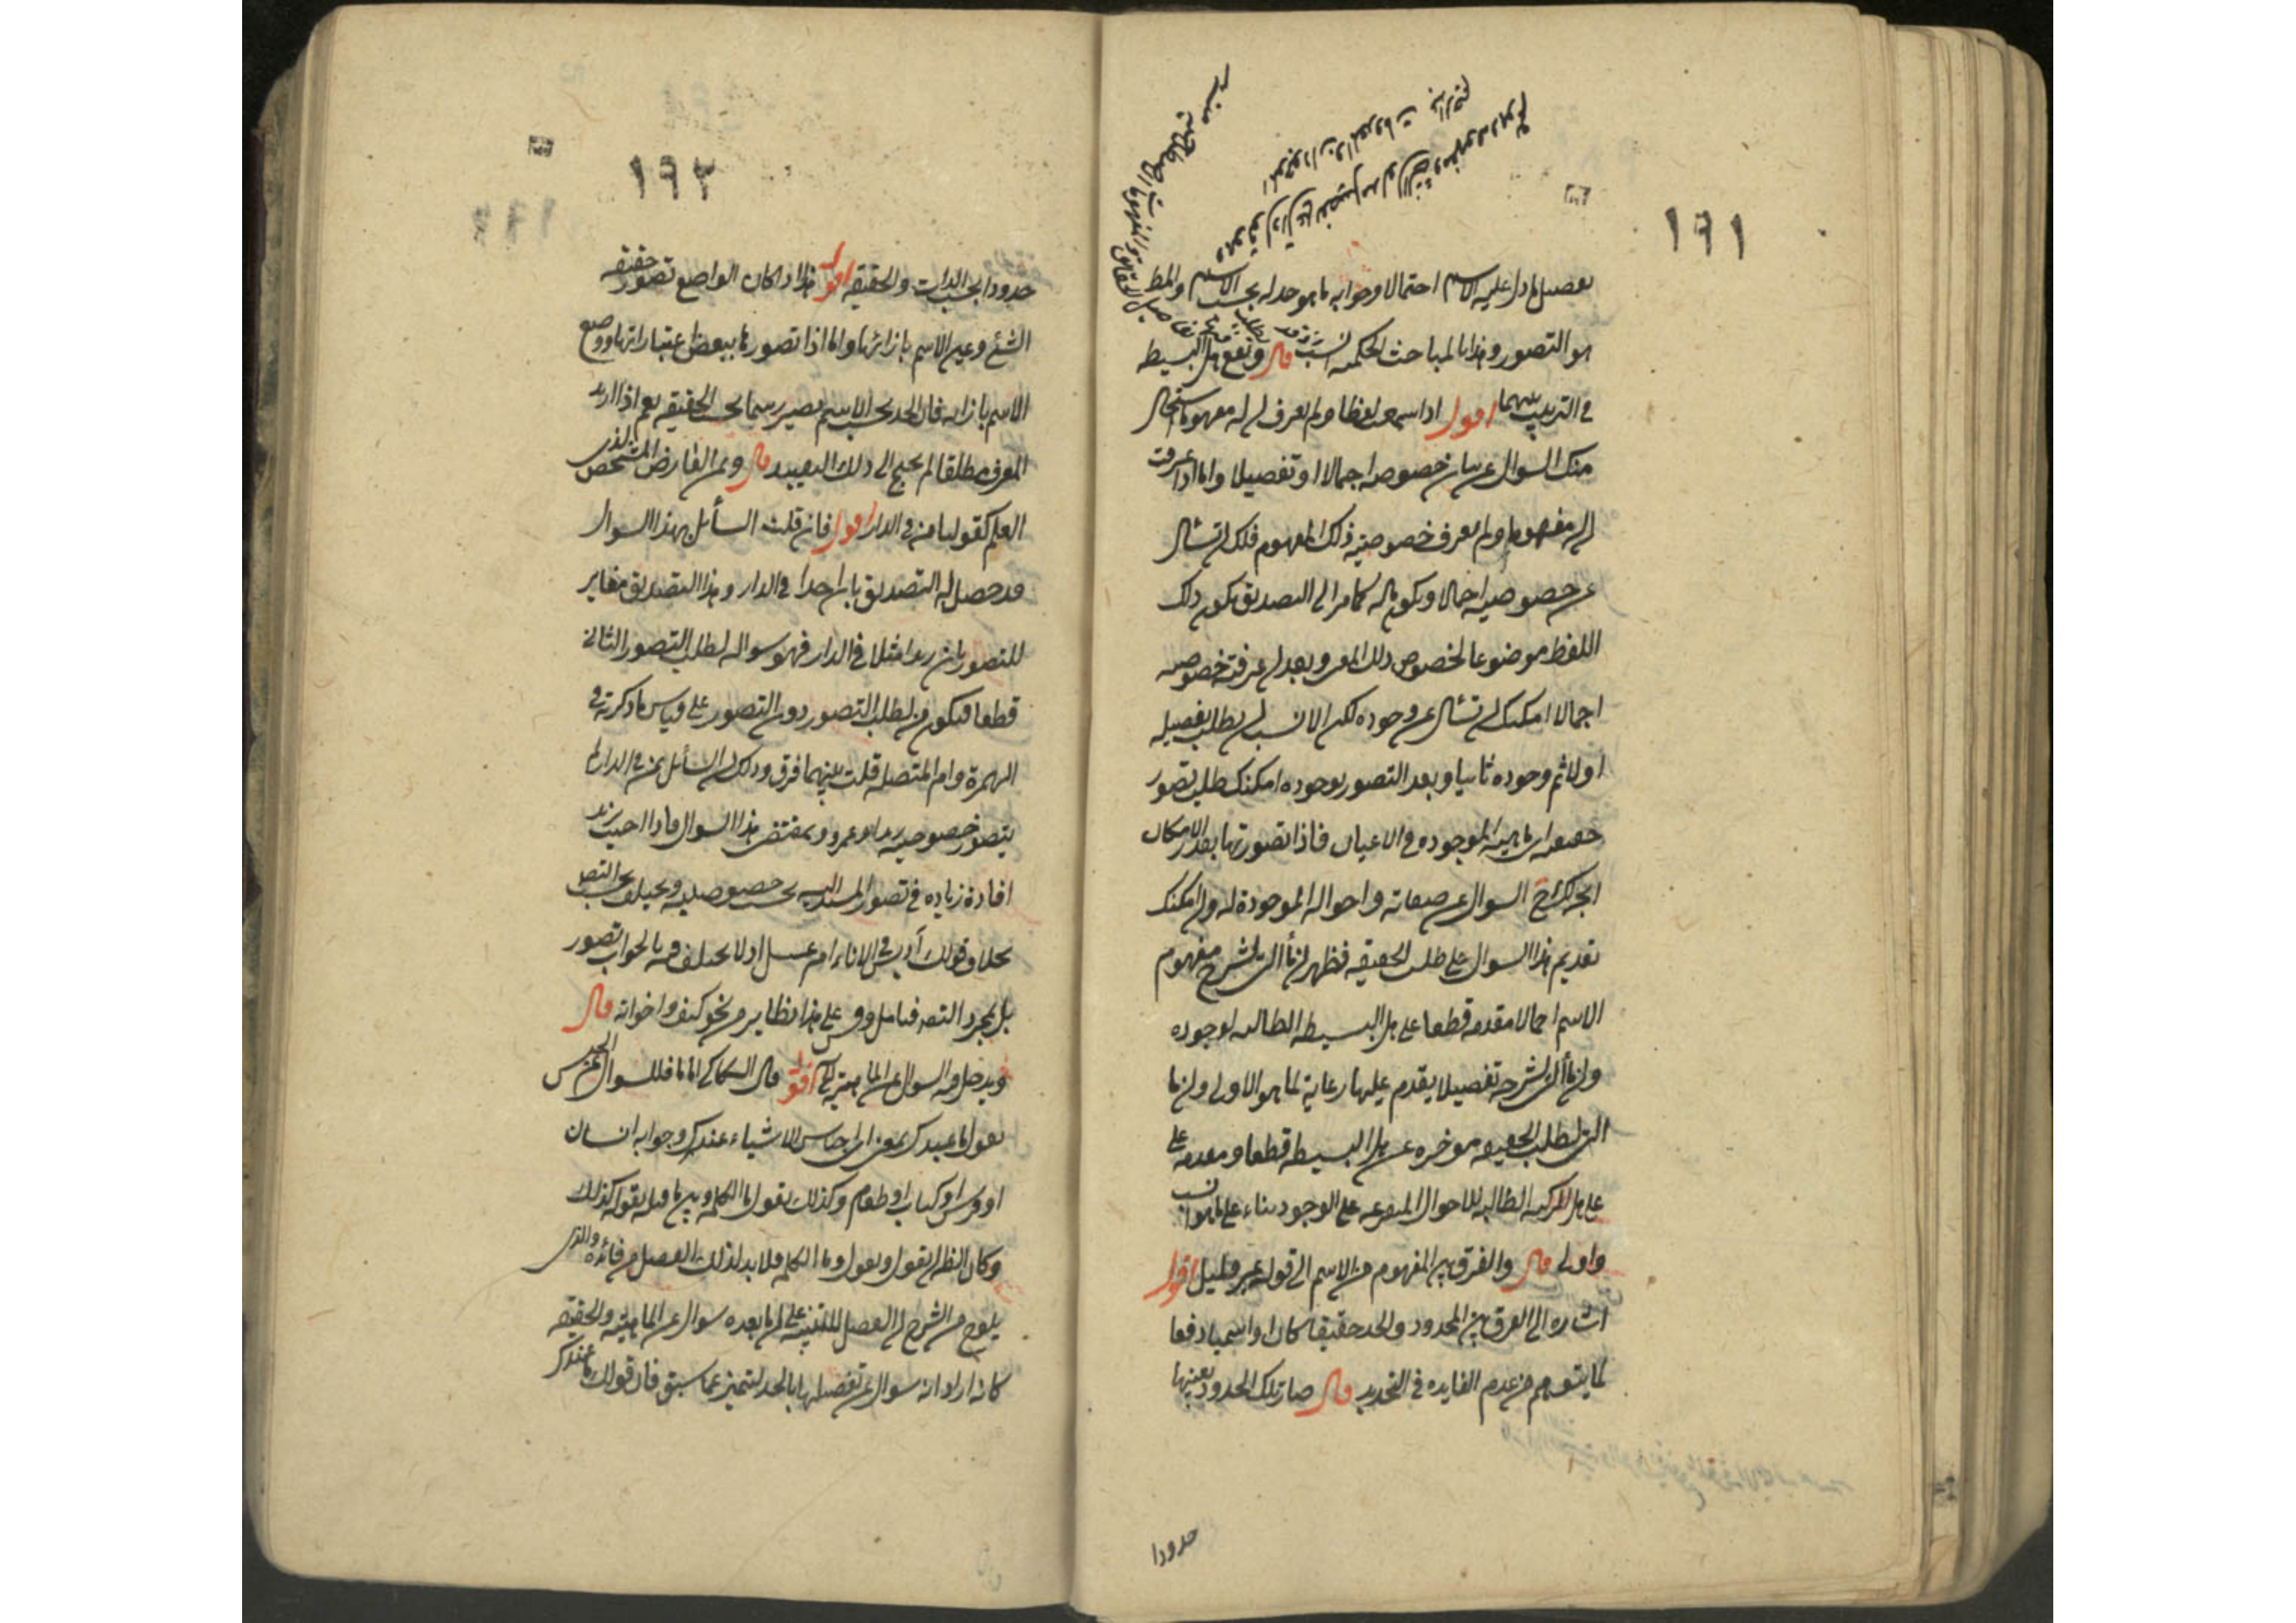 ١٩١
تفصيل ما دل عليه الاسم احتمالا وجوابه ما هو حد له بحسب الاسم والمط
هو التصور وهذا بالمباحث الحكمية انسب قال وتقع هل البسيطة
في الترتيب بينهما اقول اذا سمعت لفظا ولم تعرف ان له مفهوما استحال
منك السوال عن بيان خصوصه اجمالا او تفصيلا واما اذا عرفت
ان له مفهوما ولم تعرف خصوصية ذلك المفهوم فلك ان تسأل
عن خصوصيته اجمالا ويكون مآله كما مر الى التصديق بكون ذلك
اللفظ موضوعا لخصوص ذلك المعنى وبعد ان عرفته خصوصه
اجمالا امكنك ان تسأل عن وجوده لكن الانسب ان يطلب تفصيله
اولا ثم وجوده ثانيا وبعد التصور بوجوده امكنك طلب تصور
حقيقته اى ماهيته الموجودة في الاعيان فاذا تصورتها بقدر الامكان
اتجه لك ح السوال عن صفاته واحواله الموجودة له وان امكنك
تقديم هذا السوال على طلب الحقيقة فظهر ان ما التى لشرح مفهوم
الاسم اجمالا مقدمة قطعا على هل البسيطة الطالبة لوجوده
وان ما التى لشرحه تفصيلا يقدم عليها رعاية لما هو الاولى وان ما
التى لطلب الحقيقة موخرة عن هل البسيطة قطعا ومقدمة على
على هل المركبة الطالبة للاحوال المتفرعة على الوجود بناء على ما هو انسب
واولى قال والفرق بين المفهوم من الاسم الى قوله غير قليل اقول
اشارة الى الفرق بين المحدود والحد حقيقيا كان او اسميا دفعا
لما يتوهم من عدم الفايده في التحديد قال صار تلك الحدود بعينها
حدودا
١٩٢
حدودا بحسب الذات والحقيقة اقول هذا اذا كان الواضع تصور حقيقة
الشئ وعين الاسم بازائها واما اذا تصورها ببعض اعتباراتها ووضع
الاسم بازائه فان الحد بحسب الاسم يصير رسما بحسب الحقيقة نعم اذا اريد
المعرف مطلقا لم يحتج الى ذلك التقييد قال وبمن العارض المشخص الذى
العلم كقولنا من في الدار اقول فان قلت السأئل بهذا السوال
قد حصل له التصديق بان احدا في الدار وهذا التصديق مغاير
للتصور بان زيدا مثلا في الدار فهو سواله لطلب التصور الثانى
قطعا فيكون من لطلب التصور دون التصور على قياس ما ذكرته في
الهمزة وام المتصلة قلت بينهما فرق وذلك ان السأئل بمن في الدار لم
يتصور خصوصية زيد او عمرو وبمقتضى هذا السوال فاذا اجيب بزيد
افادة زيادة في تصور المسند اليه بحسب خصوصيته ويختلف بحسب التص
بخلاف قولك أدبس في الاناء ام عسل اذ لا يختلف فيه بالجواب تصور
بل بمجرد التصد فتامل وقس على هذا نظايره من نحو كيف واخواته قال
ويدخل فيه السوال عن الماهية الخ اقول قال السكاكى اما ما فللسوال عن الجنس
تقول ما عندك بمعنى اى اجناس الاشياء عندك وجوابه انسان
او فرس او كتاب او طعام وكذلك تقول ما الكلمة وبين ما قبله بقوله كذلك
وكان الظ ان يقول وتقول وما الكلمة فلا بد لذلك الفصل من فائدة والذى
يلوح من الشرح ان الفصل للتنبيه على ان ما بعده سوال عن الماهية والحقيقة
كانه اراد انه سوال عن تفصيلها بالحد لتتميز عما سبق فان قولك ما عندك